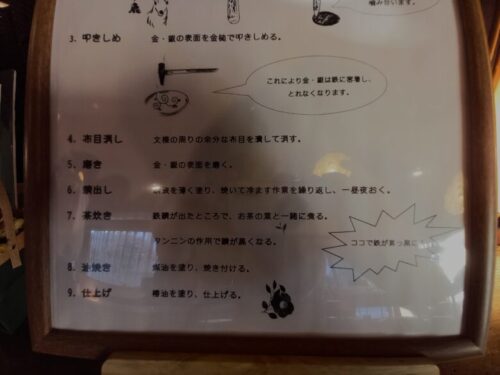 噛み合います。
3. 叩きしめ　金・銀の表面を金槌で叩きしめる。
これにより金・銀は鉄に密着し、
とれなくなります。
4. 布目消し　文様の周りの余分な布目を潰して消す。
5. 磨き　金・銀の表面を磨く。
6. 錆出し　液を薄く塗り、焼いて冷ます作業を繰り返し、一昼夜おく。
7. 茶炊き　鉄錆が出たところで、お茶の葉と一緒に煮る。
タンニンの作用で錆が黒くなる。
ココで鉄が真っ黒に
8. 油焼き　油を塗り、焼き付ける。
9. 仕上げ　椿油を塗り、仕上げる。